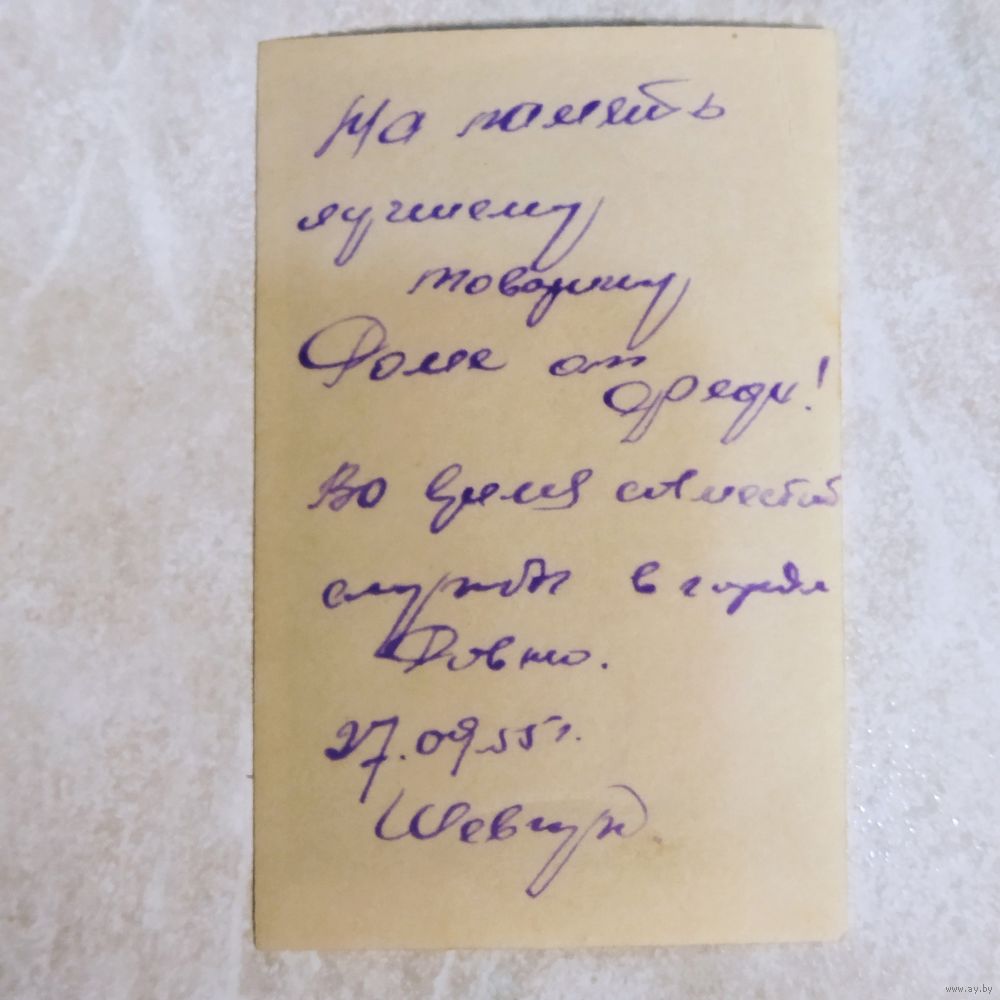 На память
лучшему
товарищу
Фоме от
Феди!
Во время совместной
службы в городе
Ровно.
27.09.55г.
(Шевчук)
www.ay.by